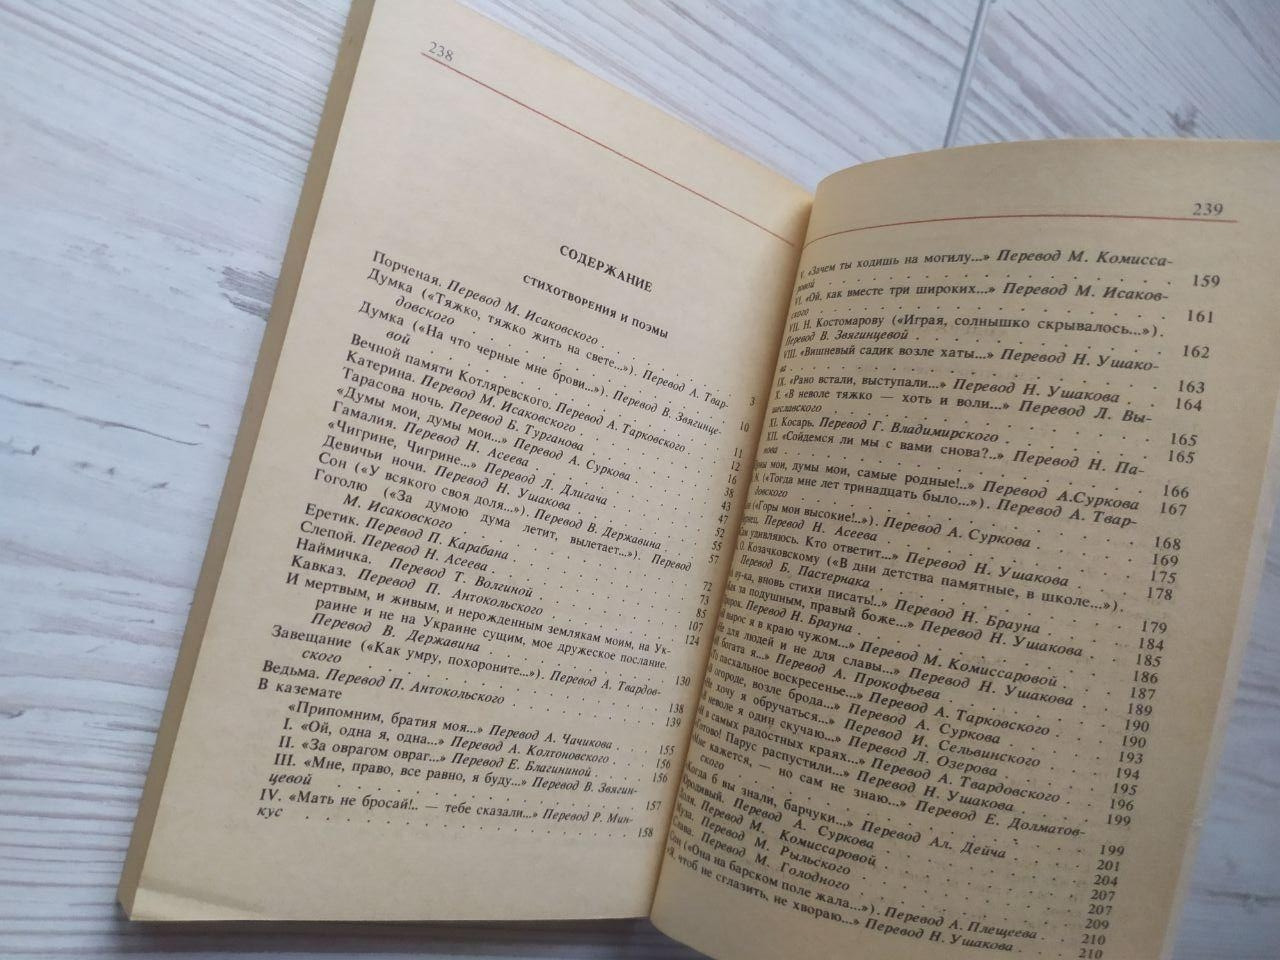 238
СОДЕРЖАНИЕ
СТИХОТВОРЕНИЯ И ПОЭМЫ
Порченая. Перевод М. Исаковского . . . 3
Думка («Тяжко, тяжко жить на свете...»). Перевод А. Твар-
довского . . . 10
Думка («На что черные мне брови...»). Перевод В. Звягинце-
вой . . . 11
Вечной памяти Котляревского. Перевод А. Тарковского . . . 12
Катерина. Перевод М. Исаковского . . . 16
Тарасова ночь. Перевод Б. Турганова . . . 38
«Думы мои, думы мои...» Перевод А. Суркова . . . 43
Гамалия. Перевод Н. Асеева . . . 47
«Чигрине, Чигрине...» Перевод Л. Длигача . . . 52
Девичьи ночи. Перевод Н. Ушакова . . . 55
Сон («У всякого своя доля...»). Перевод В. Державина . . . 57
Гоголю («За думою дума летит, вылетает...»). Перевод
М. Исаковского . . . 72
Еретик. Перевод П. Карабана . . . 73
Слепой. Перевод Н. Асеева . . . 85
Наймичка. Перевод Т. Волгиной . . . 107
Кавказ. Перевод П. Антокольского . . . 124
И мертвым, и живым, и нерожденным землякам моим, на Ук-
раине и не на Украине сущим, мое дружеское послание.
Перевод В. Державина . . . 130
Завещание («Как умру, похороните...»). Перевод А. Твардов-
ского . . . 138
Ведьма. Перевод П. Антокольского . . . 139
В каземате
«Припомним, братия моя...» Перевод А. Чачикова . . . 155
I. «Ой, одна я, одна...» Перевод А. Колтоновского . . . 156
II. «За оврагом овраг...» Перевод Е. Благининой . . . 156
III. «Мне, право, все равно, я буду...» Перевод В. Звягин-
цевой . . . 157
IV. «Мать не бросай!.. — тебе сказали...» Перевод Р. Мин-
кус . . . 158
239
V. «Зачем ты ходишь на могилу...» Перевод М. Комисса-
ровой . . . 159
VI. «Ой, как вместе три широких...» Перевод М. Исаков-
ского . . . 161
VII. Н. Костомарову («Играя, солнышко скрывалось...»).
Перевод В. Звягинцевой . . . 162
VIII. «Вишневый садик возле хаты...» Перевод Н. Ушако-
ва . . . 163
IX. «Рано встали, выступали...» Перевод Н. Ушакова . . . 164
X. «В неволе тяжко — хоть и воли...» Перевод Л. Вы-
шеславского . . . 165
XI. Косарь. Перевод Г. Владимирского . . . 165
XII. «Сойдемся ли мы с вами снова?..» Перевод Н. Па-
нова . . . 166
мои, думы мои, самые родные!..» Перевод А.Суркова . . . 167
(«Тогда мне лет тринадцать было...»). Перевод А. Твар-
довского . . . 168
(«Горы мои высокие!..»). Перевод А. Суркова . . . 169
Перевод Н. Асеева . . . 175
удивляюсь. Кто ответит...» Перевод Н. Ушакова . . . 178
О. Козачковскому («В дни детства памятные, в школе...»).
Перевод Б. Пастернака . . . 179
ну-ка, вновь стихи писать!..» Перевод Н. Брауна . . . 184
за подушным, правый боже...» Перевод Н. Ушакова . . . 185
Перевод Н. Брауна . . . 186
вырос я в краю чужом...» Перевод М. Комиссаровой . . . 187
для людей и не для славы...» Перевод Н. Ушакова . . . 189
богата я...» Перевод А. Прокофьева . . . 190
пасхальное воскресенье...» Перевод А. Тарковского . . . 190
огороде, возле брода...» Перевод А. Суркова . . . 193
хочу я обручаться...» Перевод И. Сельвинского . . . 194
неволе я один скучаю...» Перевод Л. Озерова . . . 195
в самых радостных краях...» Перевод А. Твардовского . . . 196
«Готово! Парус распустили...» Перевод Н. Ушакова . . . 199
«Мне кажется, — но сам не знаю...» Перевод Е. Долматов-
ского . . . 199
«Когда б вы знали, барчуки...» Перевод Ал. Дейча . . . 201
Юродивый. Перевод А. Суркова . . . 204
Доля. Перевод М. Комиссаровой . . . 207
Муза. Перевод М. Рыльского . . . 207
Слава. Перевод М. Голодного . . . 209
Сон («Она на барском поле жала...»). Перевод А. Плещеева . . . 210
«Я, чтоб не сглазить, не хвораю...» Перевод Н. Ушакова . . . 210